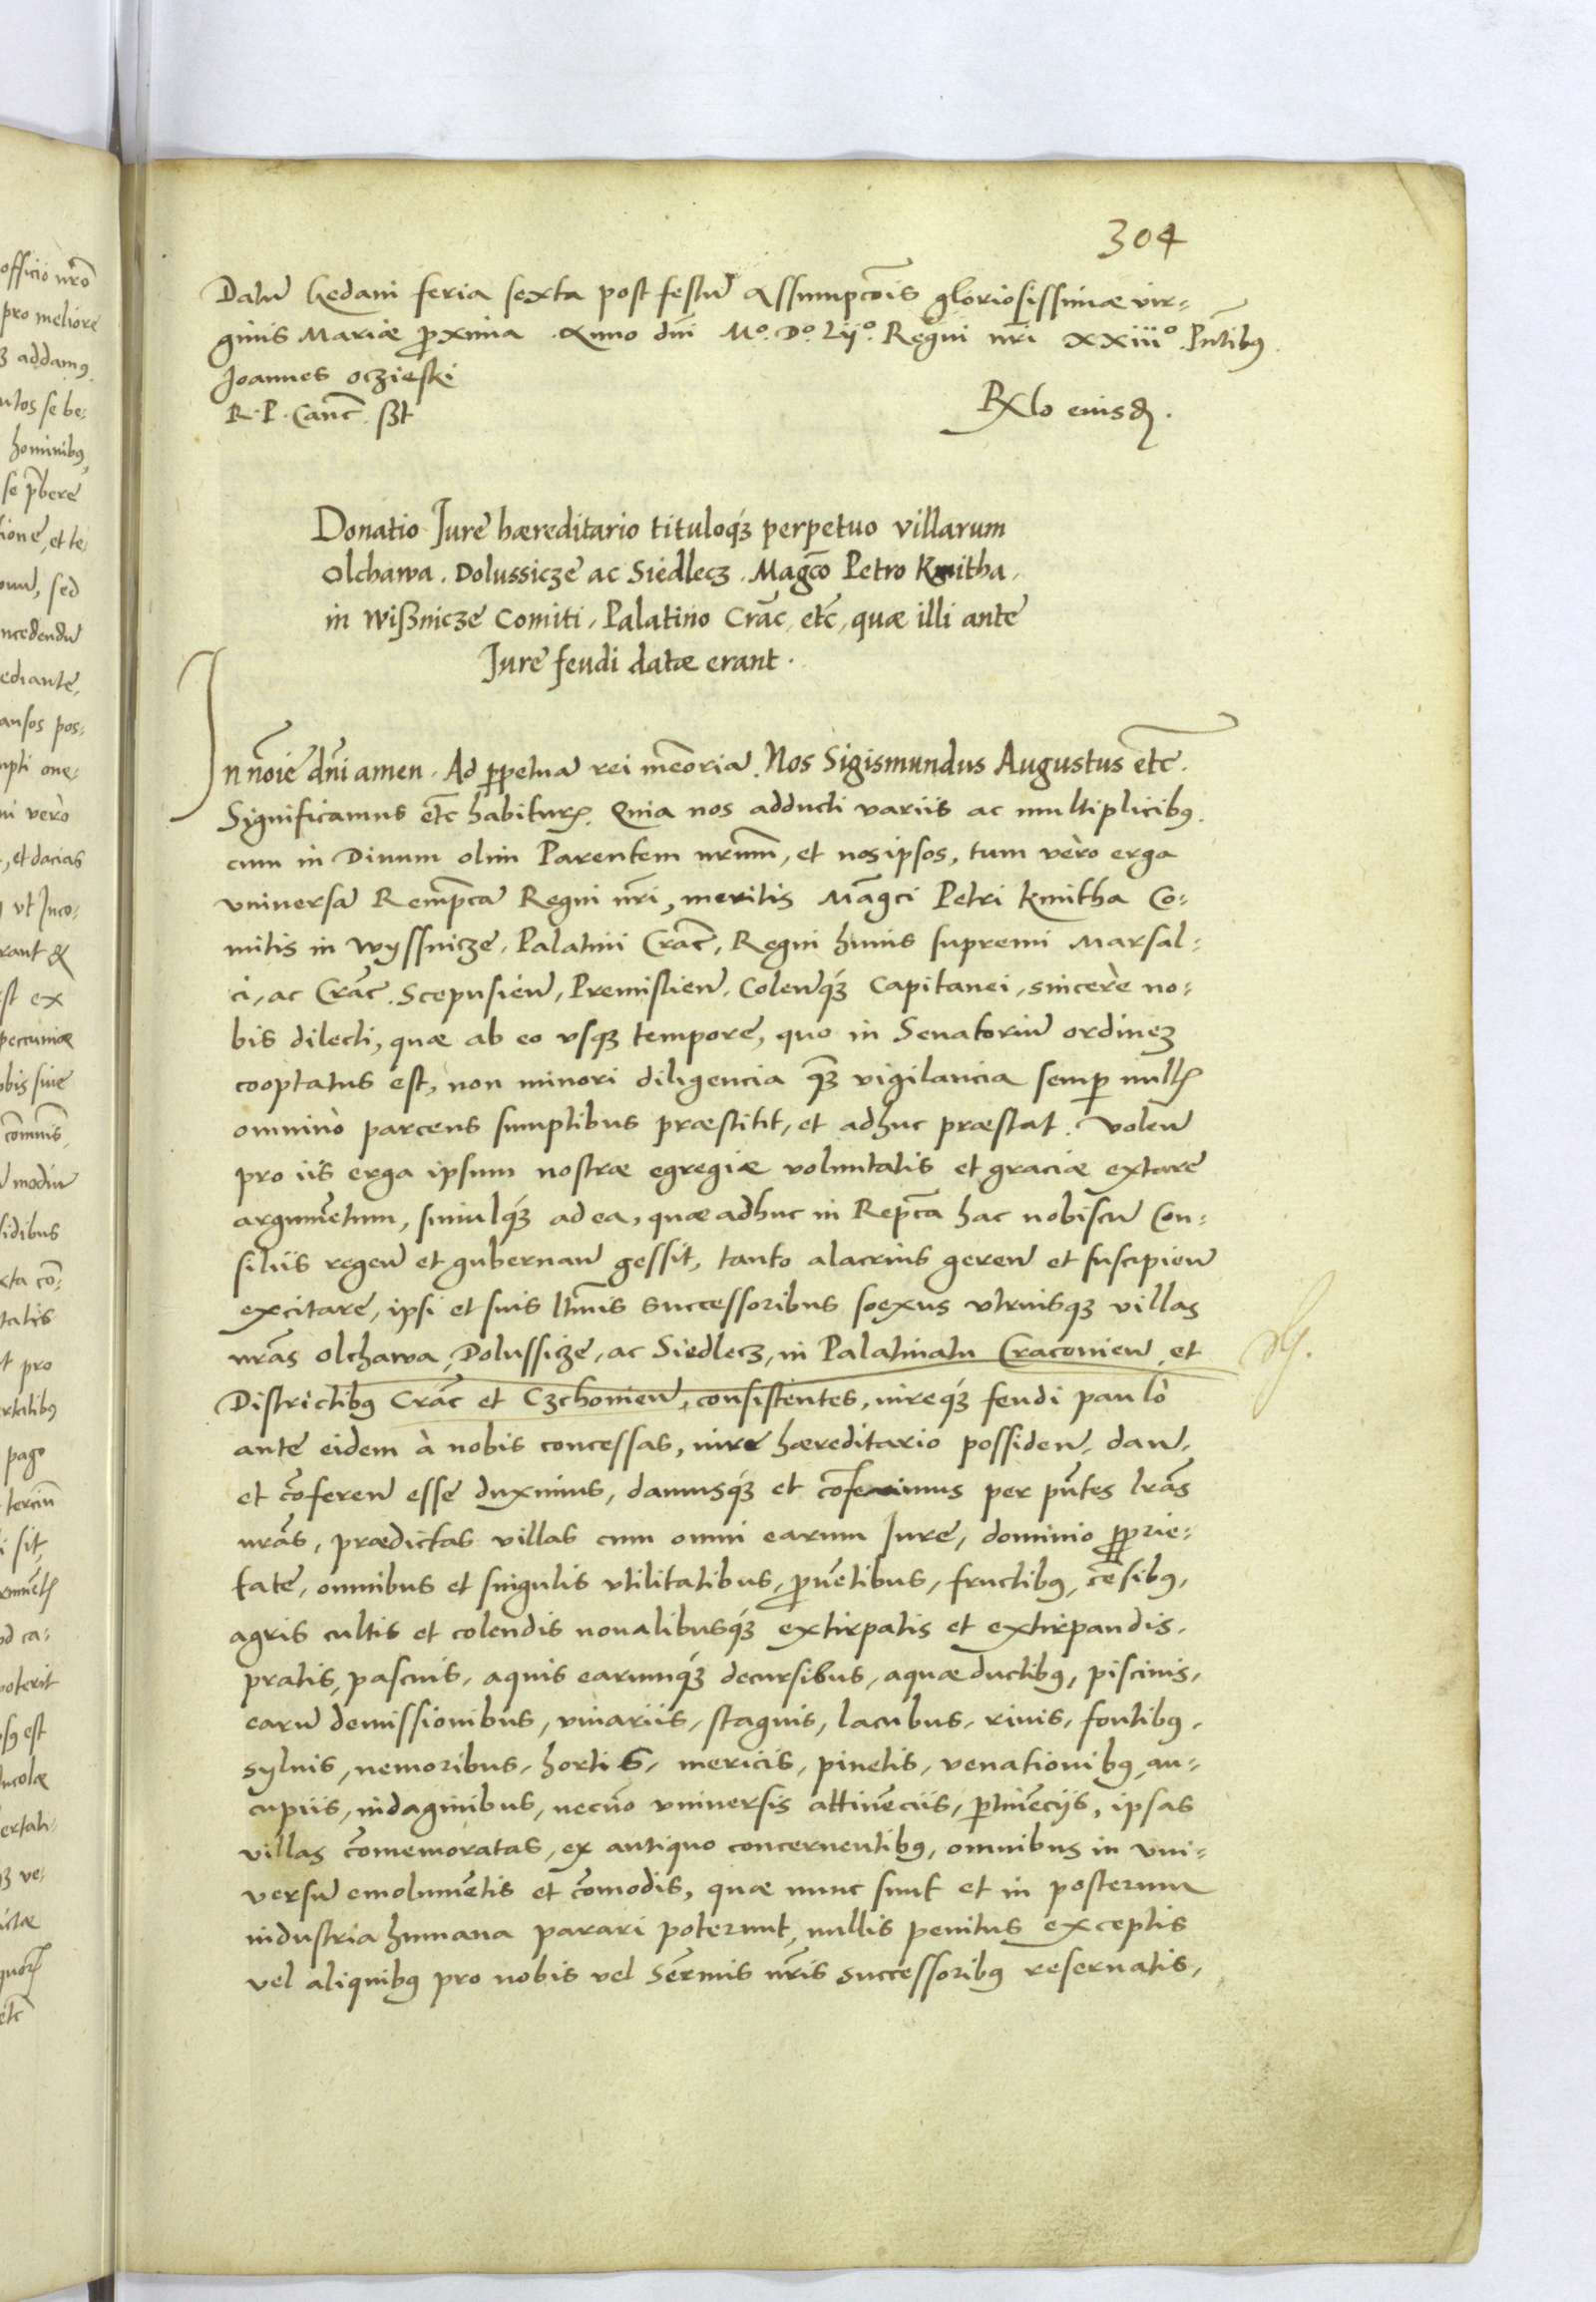 304
Datū Gedani feria sexta post festū Assumpcōis gloriosissimæ vir-
ginis Mariæ proxima. Anno dnī M°. D°. Lij°. Regni nrī XXIII°. Pntibus.
Joannes oczieski
R. P. Canc. sst
Rxlo eiusd.
Donatio Jure hæreditario tituloq́ȝ perpetuo villarum
Olchawa. Dolussicze ac Siedlecz. Magco Petro Kmitha.
in Wißnicze Comiti, Palatino Crac. etc, quæ illi ante
Jure feudi datæ erant.
In noīe dnī amen. Ad ppetuā rei memoriā. Nos Sigismundus Augustus etc.
Significamus etc habituri. Quia nos adducti variis ac multiplicibus.
cum in Divum olim Parentem nrum, et nos ipsos, tum vero erga
vniversā Rempcā Regni nrī, meritis Magci Petri kmitha Co-
mitis in wyssnicze, Palatini Crac, Regni huius supremi Marsal-
ci, ac Crac. Scepusien̄, Premislien̄, Colen̄q́ȝ Capitanei, sincere no-
bis dilecti, quæ ab eo vsqȝ tempore, quo in Senatoriū ordineȝ
cooptatus est, non minori diligencia qȝ vigilancia semp nullis
omnino parcens sumptibus præstitit, et adhuc præstat. Volen̄
pro iis erga ipsum nostræ egregiæ voluntatis et graciæ extare
argumētum, simulq́ȝ ad ea, quæ adhuc in Repca hac nobiscū Con-
siliis regen̄ et gubernan̄ gessit, tanto alacrius geren̄ et suscipien̄
excitare, ipsi et suis ltimis successoribus soexus vtriusqȝ villas
nras Olchawa, Dolussicze, ac Siedlecz, in Palatinatu Craconien̄ et
Districtibus Crac et Czchonien̄, consistentes, iureq́ȝ feudi paulò
ante eidem à nobis concessas, iure hæreditario possiden̄, dan̄,
et cōferen̄ esse duximus, damusq́ȝ et cōferimus per pntes lras
nras, prædictas villas cum omni earum Jure, dominio pprie-
tate, omnibus et singulis vtilitatibus, provētibus, fructibus, cēsibus,
agris cultis et colendis noualibusq́ȝ extirpatis et extirpandis,
pratis, pascuis, aquis earumq́ȝ decursibus, aquæductibus, piscinis,
earū demissionibus, viuariis, stagnis, lacubus, riuis, fontibus,
syluis, nemoribus, hortis, mericis, pinetis, venationibus, au-
cupiis, indaginibus, necnō vniversis attinēciis, ptinēcijs, ipsas
villas cōmemoratas, ex antiquo concernentibus, omnibus in vni-
versū emolumētis et cōmodis, quæ nunc sunt et in posterum
industria humana parari poterunt, nullis penitus exceptis
vel aliquibus pro nobis vel Sermis nris successoribus reseruatis,